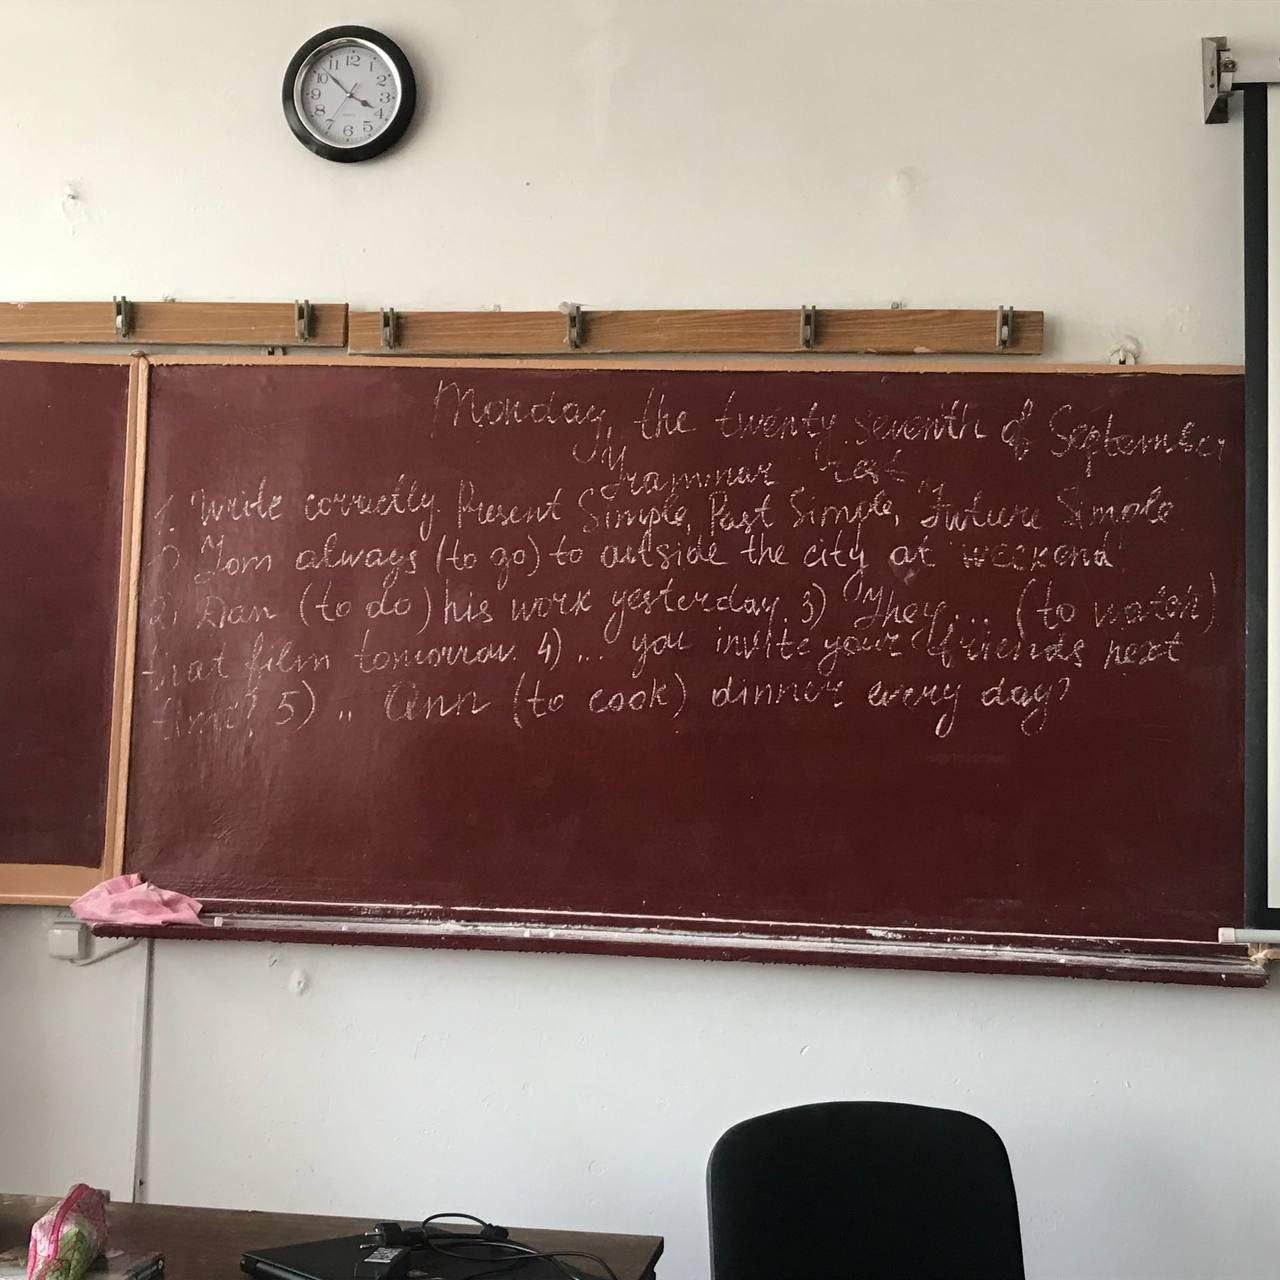 12 1 2 3 4 5 6 7 8 9 10 11
Monday, the twenty seventh of September
Grammar Test
1. Write correctly Present Simple, Past Simple, Future Simple
1) Tom always (to go) to outside the city at weekend
2) Dan (to do) his work yesterday 3) They ... (to watch)
that film tomorrow. 4) ... you invite your friends next
time? 5) .. Ann (to cook) dinner every day?